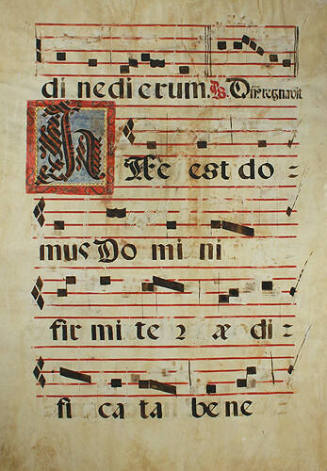 di nedi erum. Ps. Dñs regnavit
HÆc est do =
mus Do mi ni
fir mi te ꝛ æ di =
fi ca ta be ne